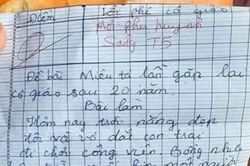 Điểm
Lời phê cô giáo
Mời phụ huynh
Sáng T5
Đề bài Miêu tả lần gặp lại
cô giáo sau 20 năm
Bài làm
Hôm nay trời nắng đẹp
tôi và vợ dắt con trai
đi chơi công viên. Bỗng